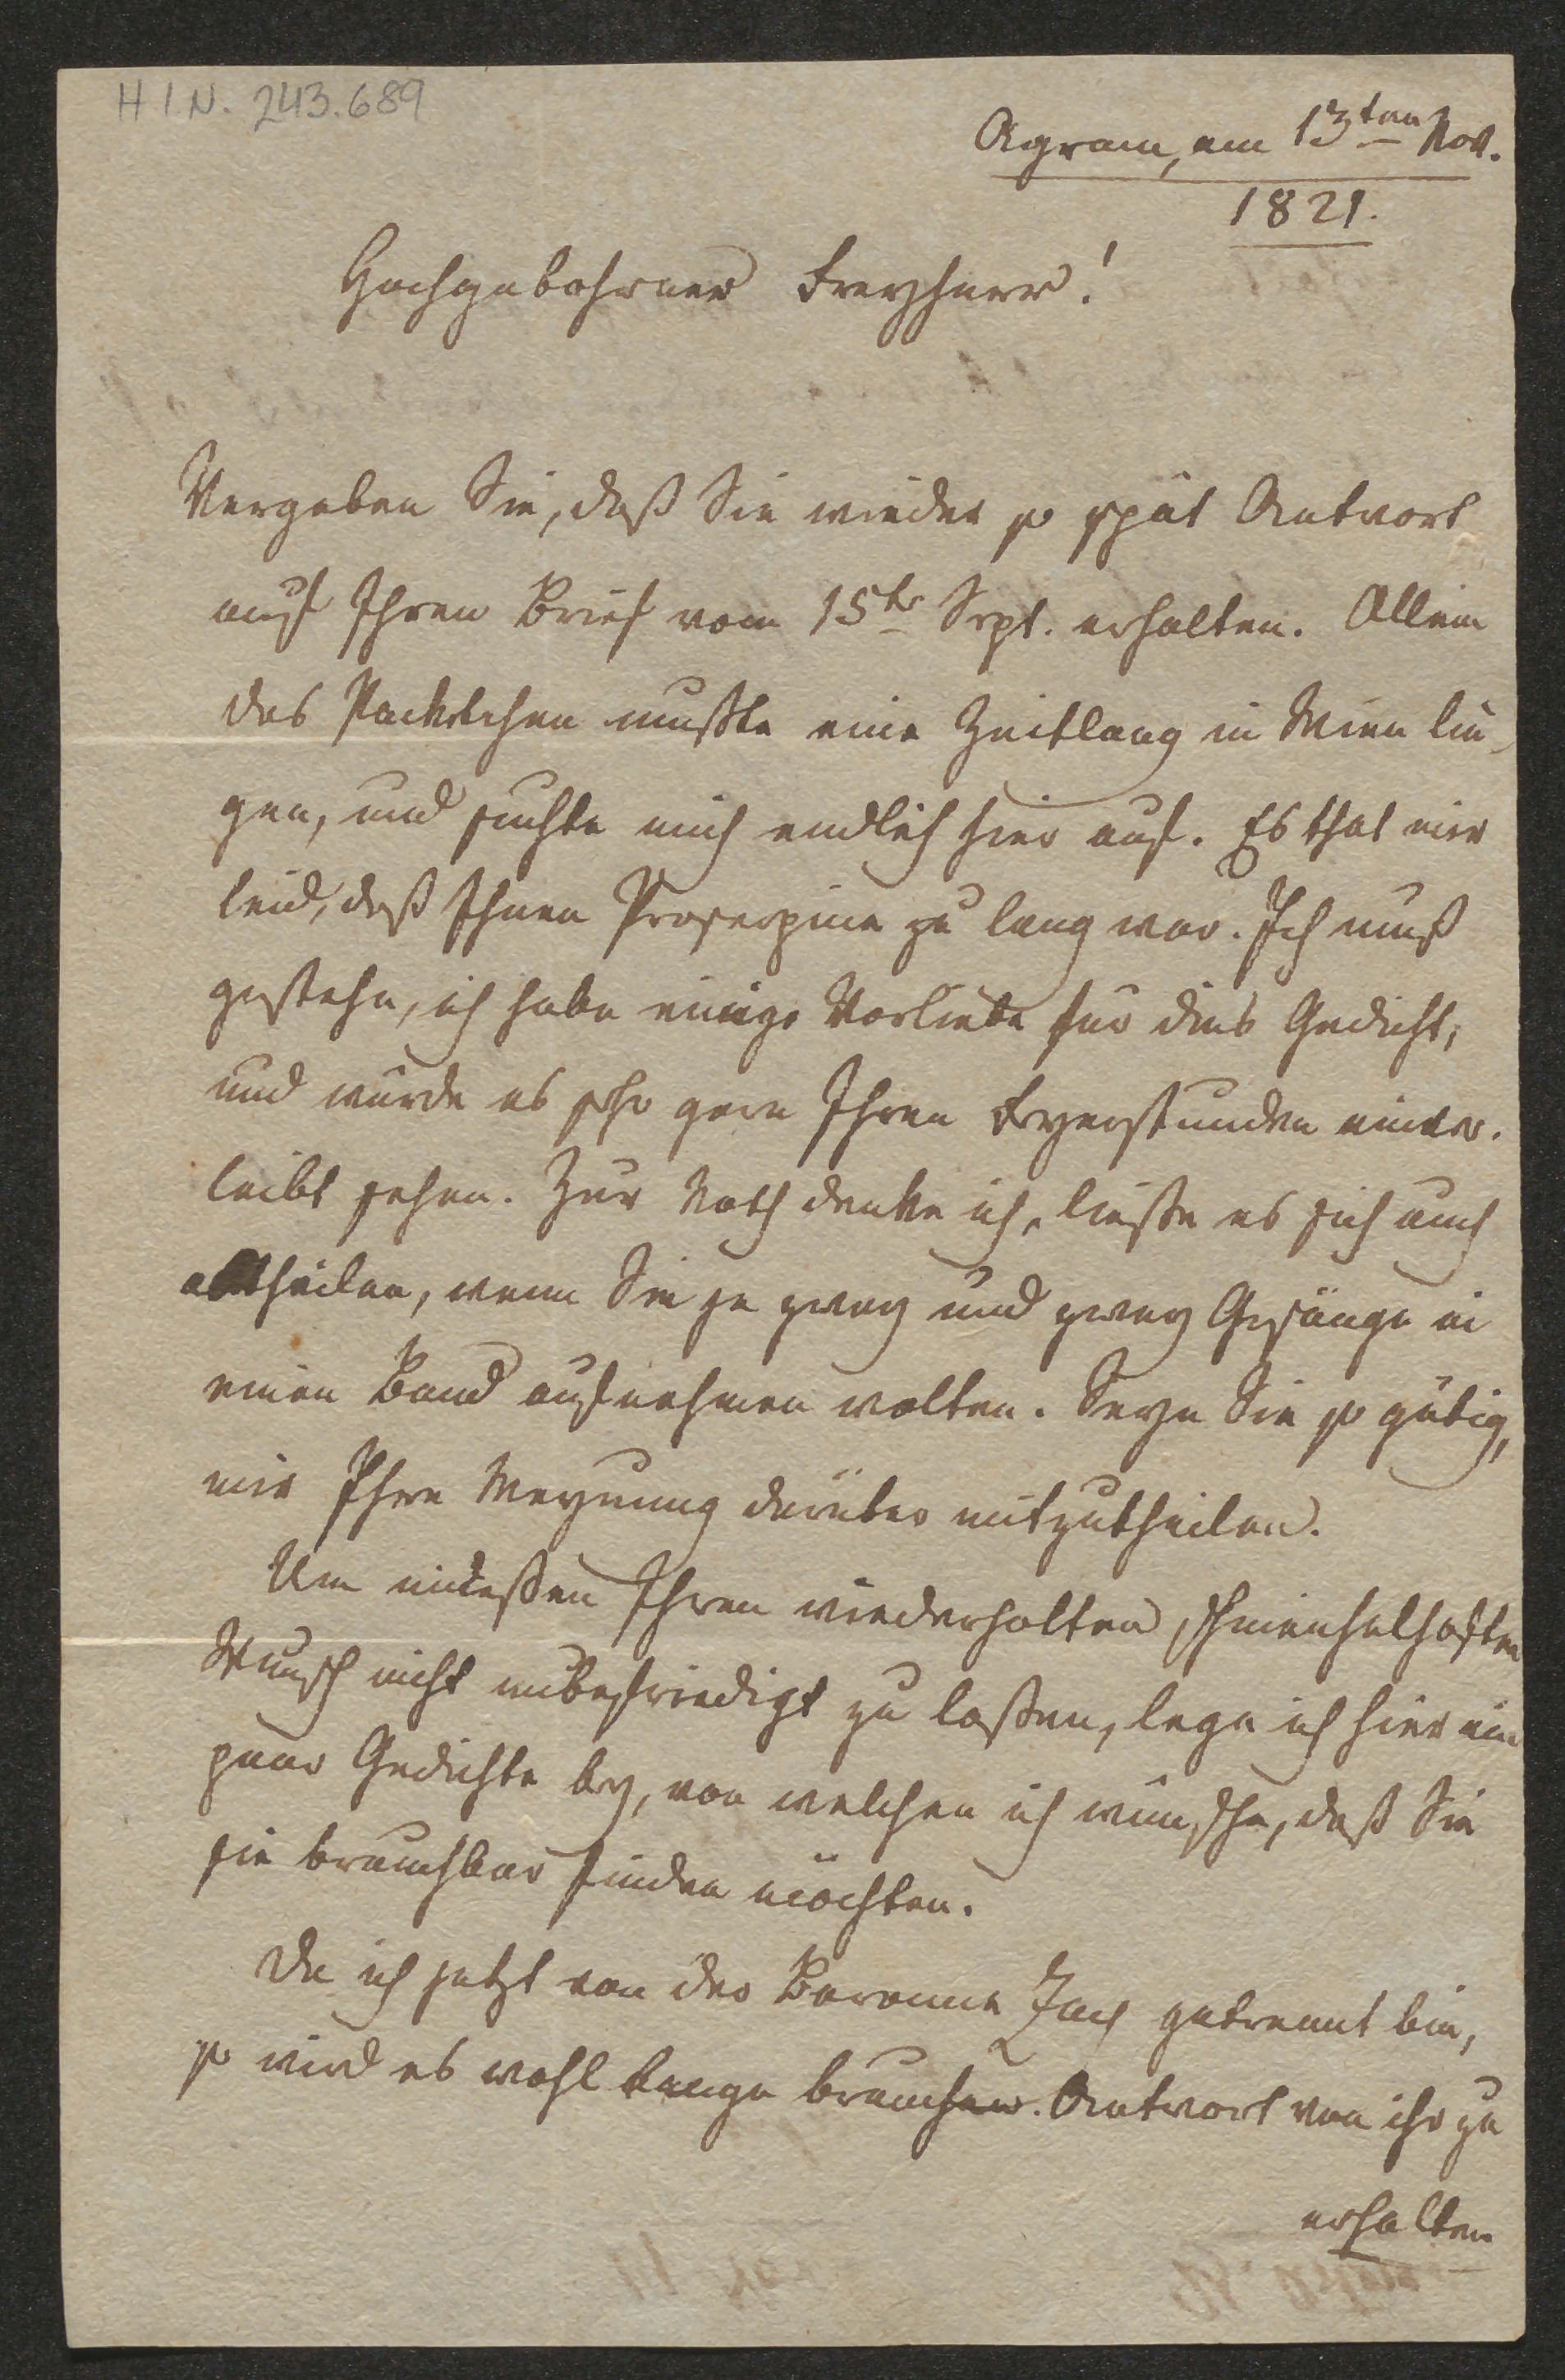 H.I.N. 243.689
Agram, am 13ten Nov.
1821.
Hochgebohrner Freyherr!
Vergeben Sie, daß Sie wieder so spät Antwort
auf Ihren Brief vom 15ten Sept. erhalten. Allein
das Packetchen mußte eine Zeitlang in Wien lie-
gen, und suchte mich endlich hier auf. Es that mir
leid, daß Ihnen Proserpina zu lang war. Ich muß
gestehn, ich habe einige Vorliebe für dies Gedicht,
und würde es sehr gern Ihren Feyerstunden einver-
leibt sehen. Zur Noth denke ich, ließe es sich auch
abtheilen, wenn Sie je zwey und zwey Gesänge in
einen Band aufnehmen wollten. Seyn Sie so gütig,
mir Ihre Meynung darüber mitzutheilen.
Um indeßen Ihren wiederholten schmeichelhaften
Wunsch nicht unbefriedigt zu laßen, lege ich hier ein
paar Gedichte bey, von welchen ich wünsche, daß Sie
sie brauchbar finden möchten.
Da ich jetzt von der Baronne Zach getrennt bin,
so wird es wohl lange brauchen. Antwort von ihr zu
erhalten